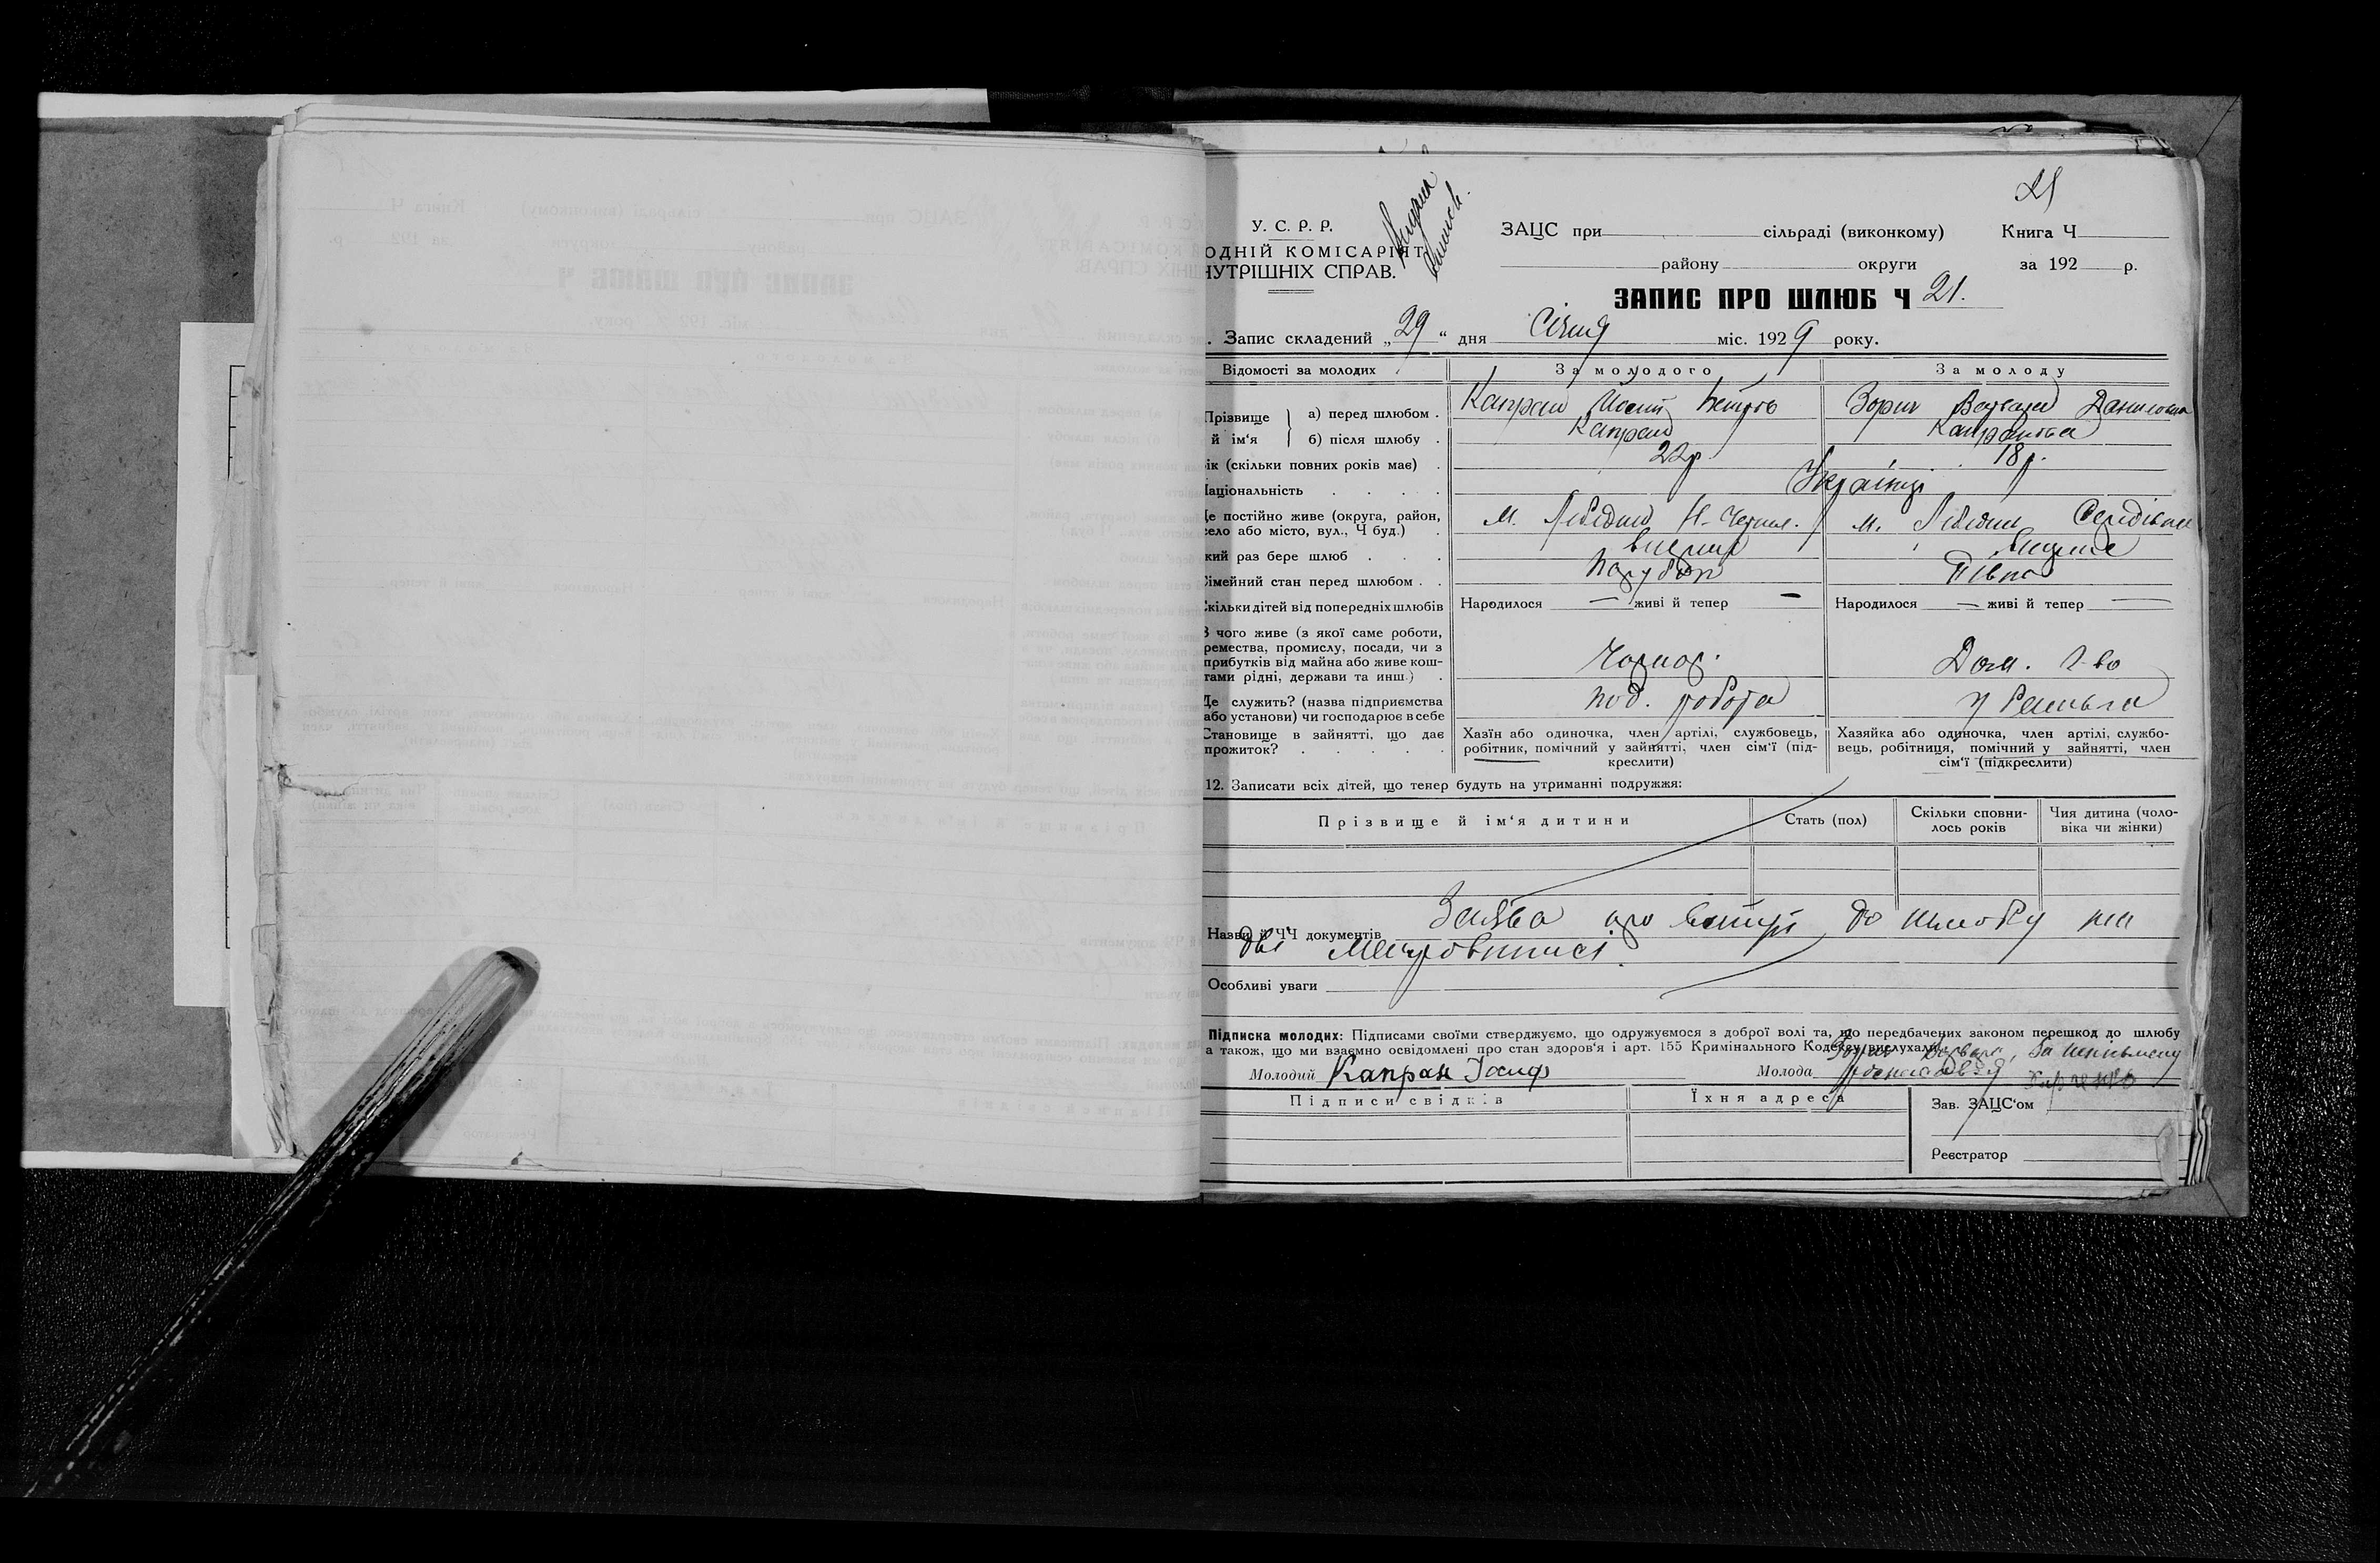 21
У. С. Р. Р.
ОДНІЙ КОМІСАРІЯТ
НУТРІШНІХ СПРАВ.
Видана
виписъ.
ЗАЦС при сільраді (виконкому) Книга Ч
району округи за 192 р.
ЗАПИС ПРО ШЛЮБ Ч 21.
. Запис складений „29“ дня Січня міс. 1929 року.
Відомості за молодих За молодого За молоду
Прізвище й ім‘я а) перед шлюбом . Капран Йосип Петров Зорин Варвара Даниловна
б) після шлюбу . Капран
ік (скільки повних років має) . 22 р. 18 р.
Національність . . . . Українці
Де постійно живе (округа, район,
село або місто, вул., Ч буд.) . м. Лебедин м. Лебедин
кий раз бере шлюб . . . вперше вперше
імейний стан перед шлюбом . . парубок Дівка
кільки дітей від попередніх шлюбів Народилося — живі й тепер — Народилося — живі й тепер —
З чого живе (з якої саме роботи,
ремества, промислу, посади, чи з
прибутків від майна або живе кош-
тами рідні, держави та инш.) . Чорнор. Дом. г-во
Де служить? (назва підприємства
або установи) чи господарює в себе под. робота у батька
Становище в зайнятті, що дає
прожиток? . . . . .
Хазїн або одиночка, член артілі, службовець,
робітник, помічний у зайнятті, член сім‘ї (під-
креслити)
Хазяйка або одиночка, член артілі, службо-
вець, робітниця, помічний у зайнятті, член
сім‘ї (підкреслити)
12. Записати всіх дітей, що тепер будуть на утриманні подружжя:
Прізвище й ім‘я дитини Стать (пол) Скільки сповни-
лось років Чия дитина (чоло-
віка чи жінки)
Назви й ЧЧ документів Заява про вступ до шлюбу та
дві
Особливі уваги
Підписка молодих: Підписами своїми стверджуємо, що одружуємося з доброї волі та, що передбачених законом перешкод до шлюбу
а також, що ми взаємно освідомлені про стан здоров‘я і арт. 155 Кримінального Кодексу вислухали.
Молодий Капран Іосиф Молода Зорин Варвара, За неписьмену
росписався Харченко
Підписи свідків Їхня адреса Зав. ЗАЦС‘ом
Реєстратор